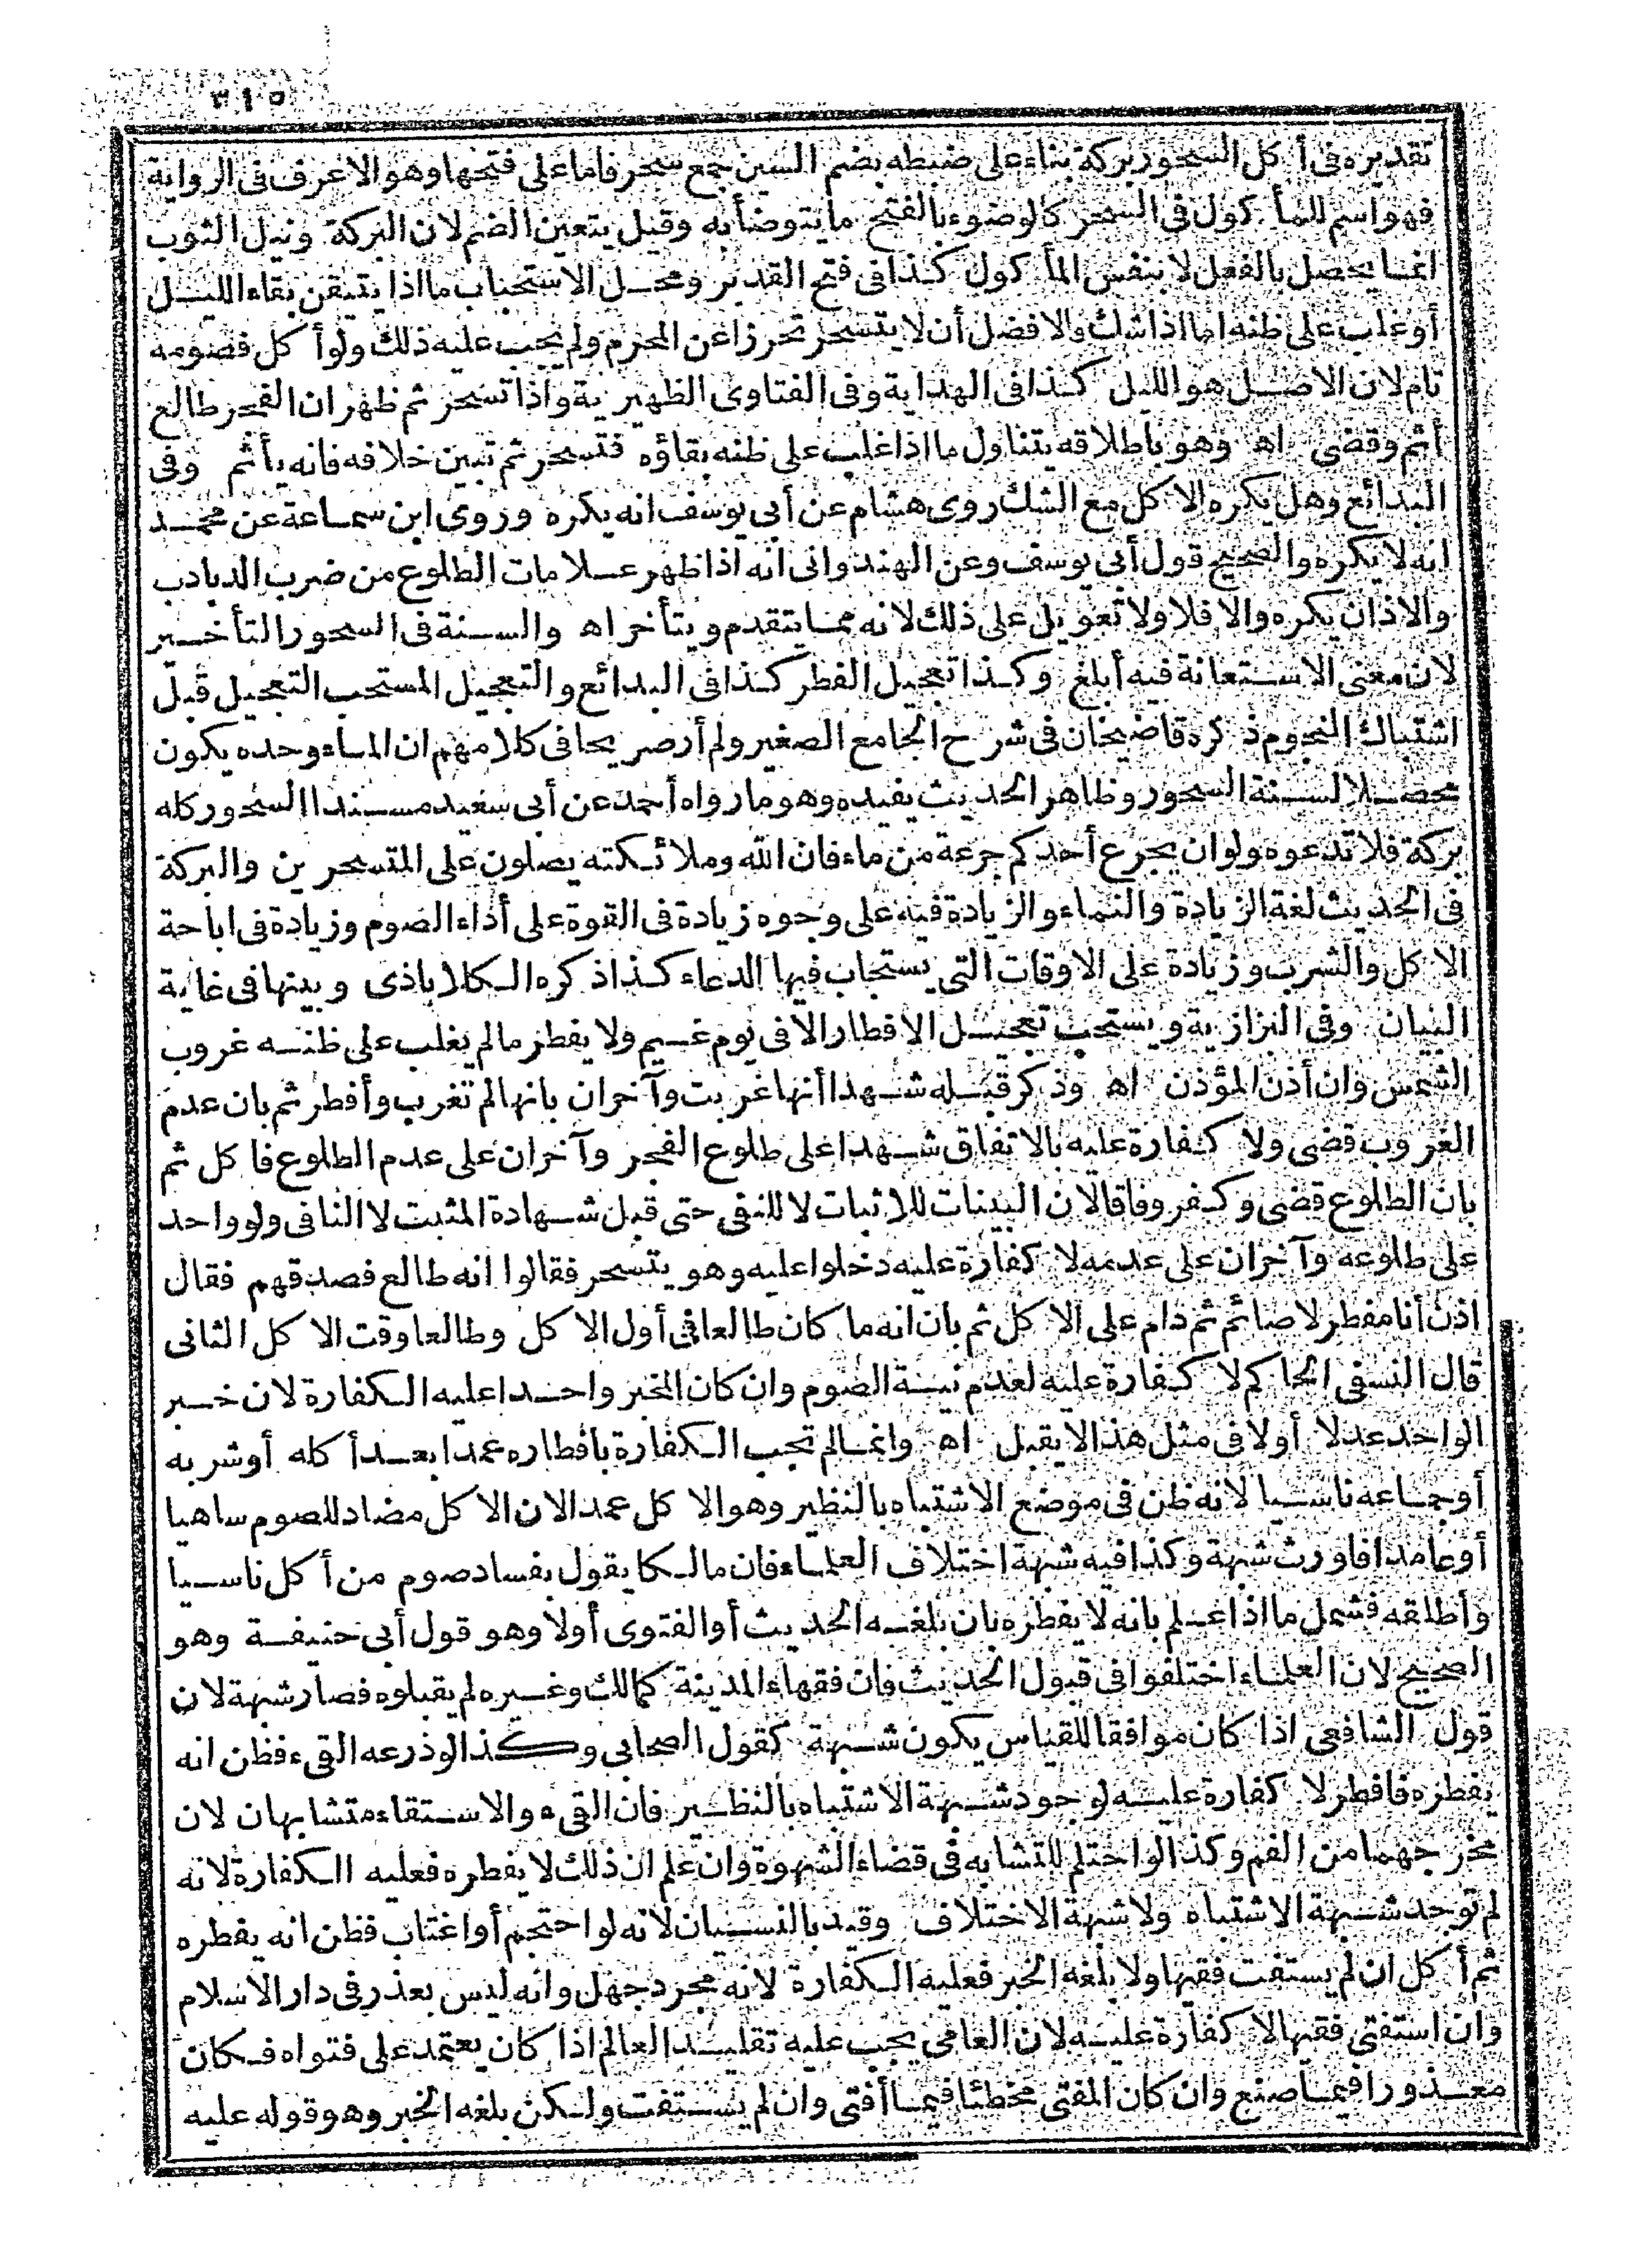 ٣١٥
تقديره فى أكل السحور بركة بناء على ضبطه بضم السين جمع سحر فاما على فتحها وهو الاعرف فى الرواية
فهو اسم للمأكول فى السحر كالوضوء بالفتح ما يتوضأ به وقيل يتعين الضم لان البركة ونيل الثوب
انما يحصل بالفعل لا بنفس المأكول كذا فى فتح القدير ومحل الاستحباب ما اذا يتيقن بقاء الليل
أو غلب على ظنه اما اذا شك والافضل أن لا يتسحر تحرزا عن المحرم ولم يجب عليه ذلك ولو أكل فصومه
تام لان الاصل هو الليل كذا فى الهداية وفى الفتاوى الظهيرية واذا تسحر ثم ظهر ان الفجر طالع
أثم وقضى اه وهو باطلاقه يتناول ما اذا غلب على ظنه بقاؤه فتسحر ثم تبين خلافه فانه يأثم وفى
البدائع وهل يكره الا كل مع الشك روى هشام عن أبى يوسف انه يكره وروى ابن سماعة عن محمد
انه لا يكره والصحيح قول أبى يوسف وعن الهندوانى انه اذا ظهر علامات الطلوع من ضرب الدبادب
والاذان يكره والا فلا ولا تعويل على ذلك لانه مما يتقدم ويتأخر اه والسنة فى السحور التأخير
لان معنى الاستعانة فيه أبلغ وكذا تعجيل الفطر كذا فى البدائع والتعجيل المستحب التعجيل قبل
اشتباك النجوم ذكره قاضيخان فى شرح الجامع الصغير ولم أر صريحا فى كلامهم ان الماء وحده يكون
محصلا لسنة السحور وظاهر الحديث يفيده وهو ما رواه أحمد عن أبى سعيد مسندا السحور كله
بركة فلا تدعوه ولو ان يجرع أحدكم جرعة من ماء فان الله وملائكته يصلون على المتسحرين والبركة
فى الحديث لغة الزيادة والنماء والزيادة فيه على وجوه زيادة فى القوة على أداء الصوم وزيادة فى اباحة
الاكل والشرب وزيادة على الاوقات التى يستجاب فيها الدعاء كذا ذكره الكلاباذى وبينها فى غاية
البيان وفى البزازية ويستحب تعجيل الافطار الا فى يوم غيم ولا يفطر ما لم يغلب على ظنه غروب
الشمس وان أذن المؤذن اه وذكر قبله شهدا أنها غربت وآخران بانها لم تغرب وأفطر ثم بان عدم
الغروب قضى ولا كفارة عليه بالاتفاق شهدا على طلوع الفجر وآخران على عدم الطلوع فاكل ثم
بان الطلوع قضى وكفر وفاقا لان البينات للاثبات لا للنفى حتى قبل شهادة المثبت لا النافى ولو واحد
على طلوعه وآخران على عدمه لا كفارة عليه دخلوا عليه وهو يتسحر فقالوا انه طالع فصدقهم فقال
اذن أنا مفطر لا صائم ثم دام على الاكل ثم بان انه ما كان طالعا فى أول الاكل وطالعا وقت الاكل الثانى
قال النسفى الحاكم لا كفارة عليه لعدم نية الصوم وان كان المخبر واحدا عليه الكفارة لان خبر
الواحد عدلا أولا فى مثل هذا لا يقبل اه وانما لم تجب الكفارة بافطاره عمدا بعد أكله أو شربه
أو جماعه ناسيا لانه ظن فى موضع الاشتباه بالنظير وهو الاكل عمدا لان الاكل مضاد للصوم ساهيا
أو عامدا فاورث شبهة وكذا فيه شبهة اختلاف العلماء فان مالكا يقول بفساد صوم من أكل ناسيا
وأطلقه فشمل ما اذا علم بانه لا يفطره بان بلغه الحديث أو الفتوى أولا وهو قول أبى حنيفة وهو
الصحيح لان العلماء اختلفوا فى قبول الحديث فان فقهاء المدينة كمالك وغيره لم يقبلوه فصار شبهة لان
قول الشافعى اذا كان موافقا للقياس يكون شبهة كقول الصحابى وكذا لو ذرعه القىء فظن انه
يفطره فافطر لا كفارة عليه لوجود شبهة الاشتباه بالنظير فان القىء والاستقاء متشابهان لان
مخرجهما من الفم وكذا لو احتلم للتشابه فى قضاء الشهوة وان علم ان ذلك لا يفطره فعليه الكفارة لانه
لم توجد شبهة الاشتباه ولا شبهة الاختلاف وقيد بالنسيان لانه لو احتجم أو اغتاب فظن انه يفطره
ثم أكل ان لم يستفت فقيها ولا بلغه الخبر فعليه الكفارة لانه مجرد جهل وانه ليس بعذر فى دار الاسلام
وان استفتى فقيها لا كفارة عليه لان العامى يجب عليه تقليد العالم اذا كان يعتمد على فتواه فكان
معذورا فيما صنع وان كان المفتى مخطئا فيما أفتى وان لم يستفت ولكن بلغه الخبر وهو قوله عليه